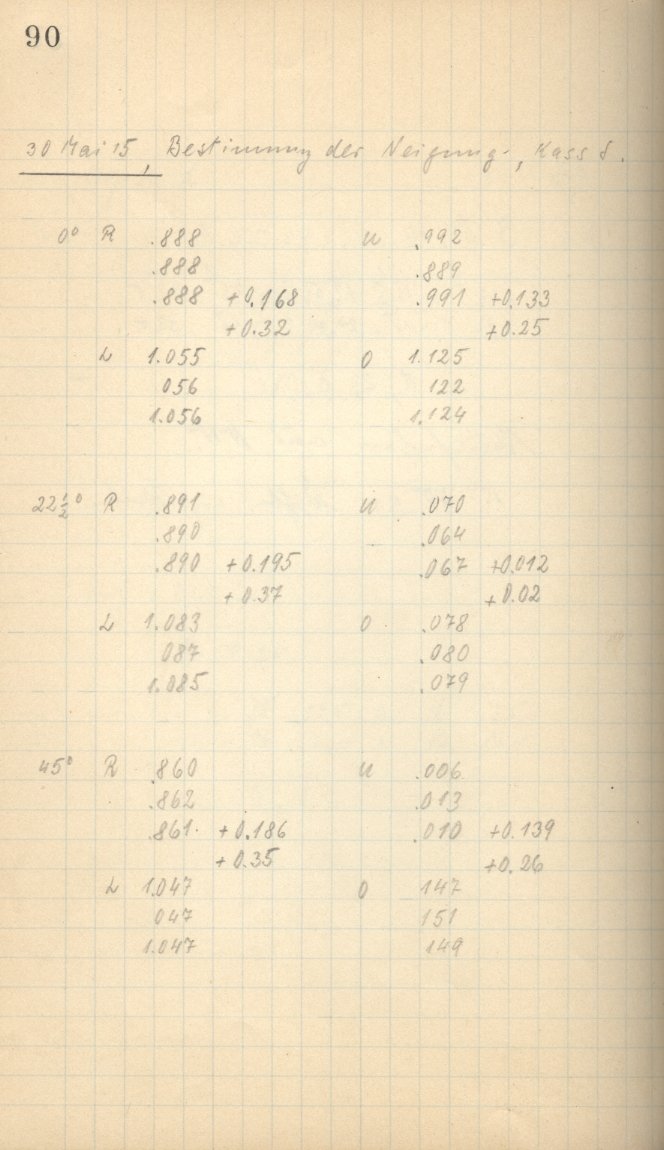 90
30 Mai 15, Bestimmung der Neigung, Kass 8.
0° R .888 U .992
.888 .889
.888 +0.168 .991 +0.133
+0.32 +0.25
L 1.055 O 1.125
056 122
1.056 1.124
22½° R .891 U .070
.890 .064
.890 +0.195 .067 +0.012
+0.37 +0.02
L 1.083 O .078
087 .080
1.085 .079
45° R .860 U .006
.862 .013
.861 +0.186 .010 +0.139
+0.35 +0.26
L 1.047 O 147
047 151
1.047 149